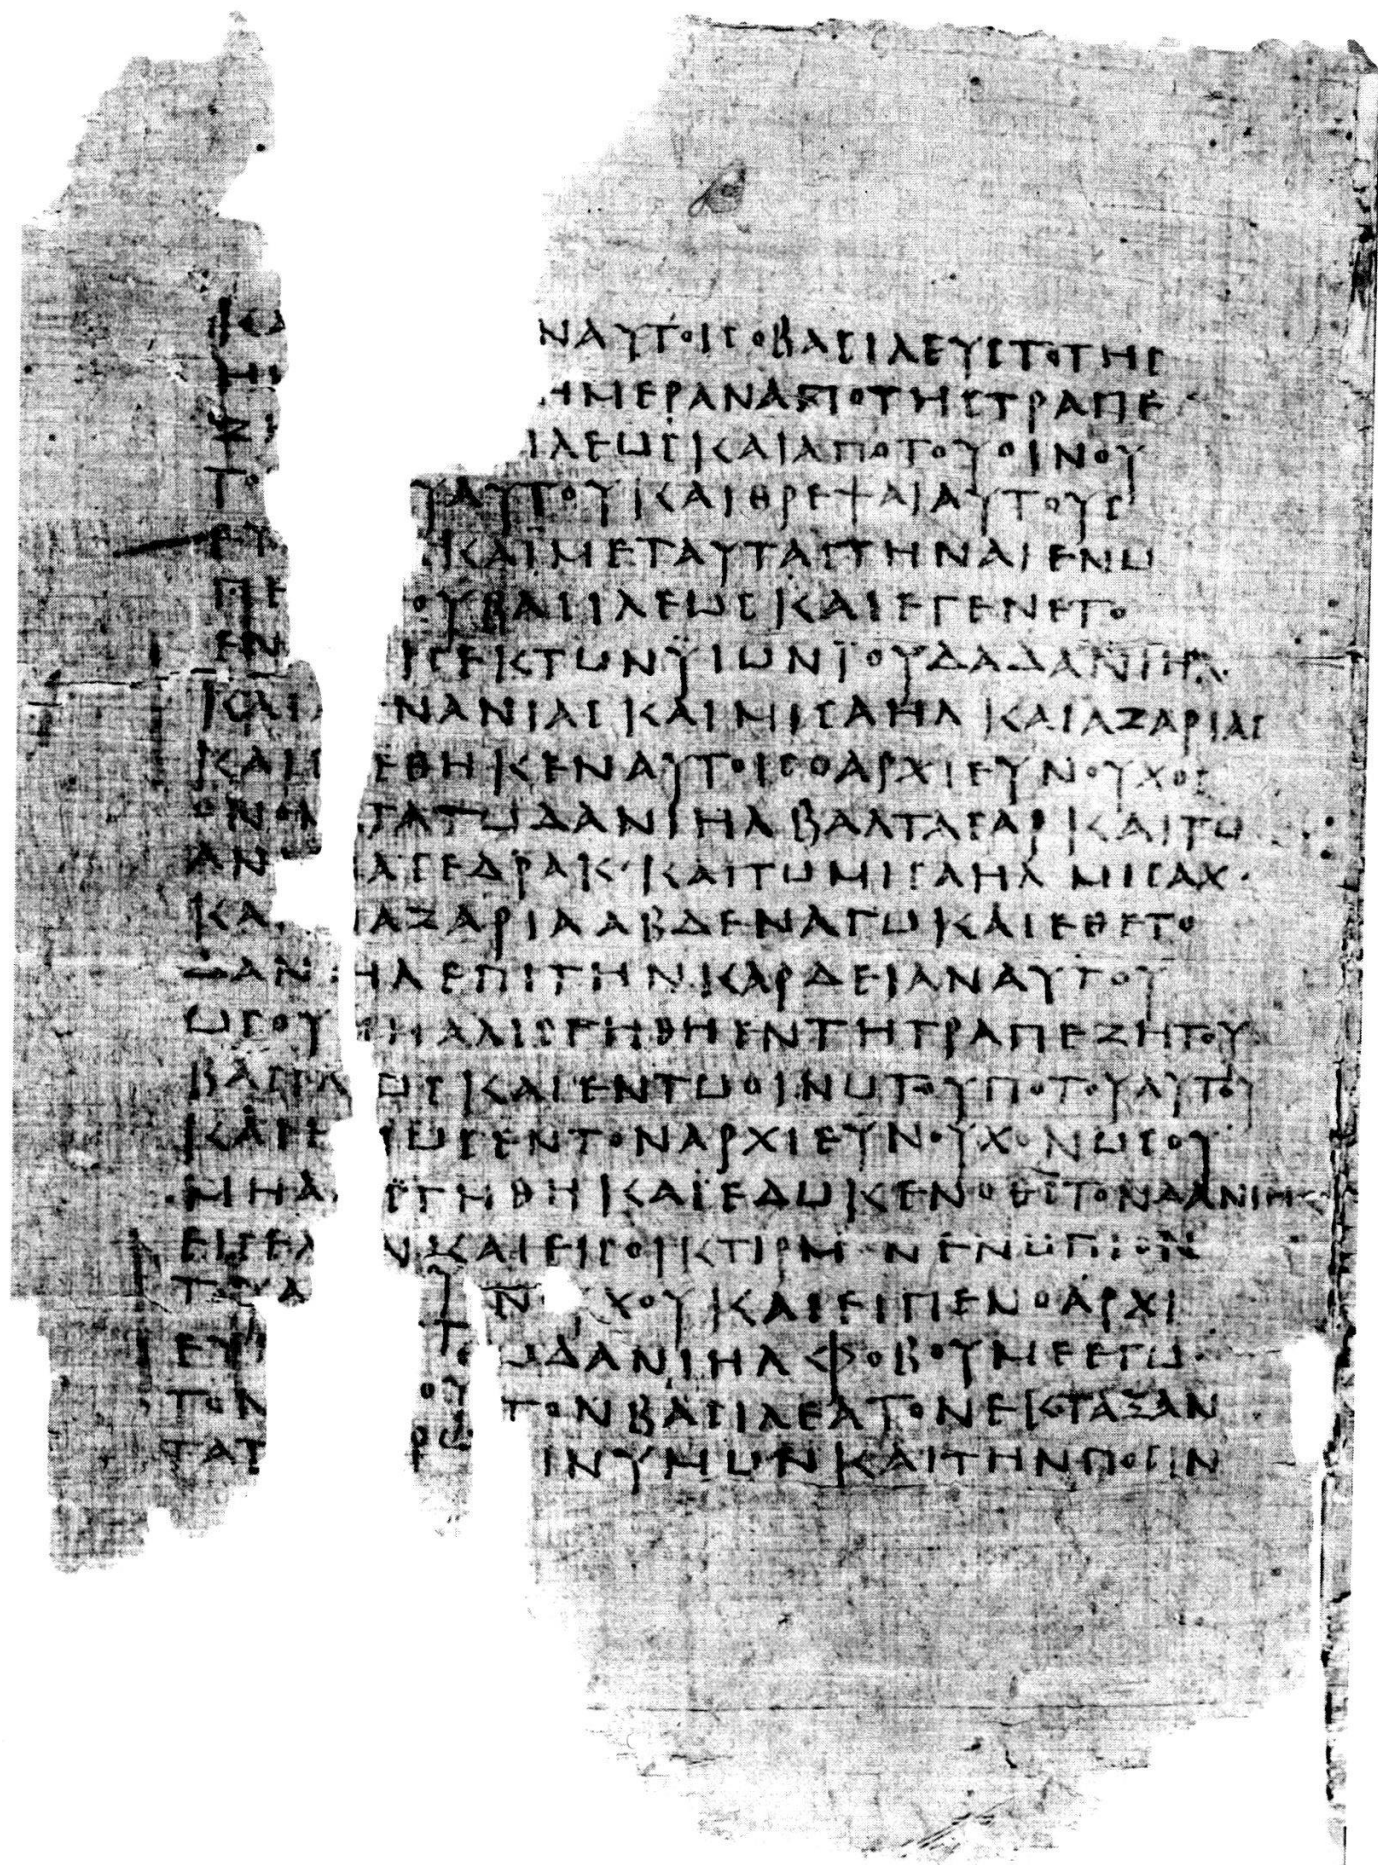 ΚΑ ΝΑΥΤΟΙϹΟΒΑϹΙΛΕΥϹΤΟΤΗϹ
Η ΗΜΕΡΑΝΑΠΟΤΗϹΤΡΑΠΕ
Ζ ΙΛΕΩϹΚΑΙΑΠΟΤΟΥΟΙΝΟΥ
ΤΟ ΥΑΥΤΟΥΚΑΙΘΡΕΨΑΙΑΥΤΟΥϹ
ΕΤ ΚΑΙΜΕΤΑΥΤΑϹΤΗΝΑΙΕΝΩ
ΠΕ ΟΥΒΑϹΙΛΕΩϹΚΑΙΕΓΕΝΕΤΟ
ΕΝ ΙϹΕΚΤΩΝΫΙΩΝΪΟΥΔΑΔΑΝΙΗΛ
ΚΑΙΑ ΝΑΝΙΑϹΚΑΙΜΙϹΑΗΛΚΑΙΑΖΑΡΙΑϹ
ΚΑΙ ΕΘΗΚΕΝΑΥΤΟΙϹΟΑΡΧΙΕΥΝΟΥΧΟϹ
ΟΝΟΜ ΤΑΤΩΔΑΝΙΗΛΒΑΛΤΑϹΑΡΚΑΙΤΩ
ΑΝ ΑϹΕΔΡΑΚ·ΚΑΙΤΩΜΙϹΑΗΛΜΙϹΑΧ·
ΚΑ ΑΖΑΡΙΑΑΒΔΕΝΑΓΩΚΑΙΕΘΕΤΟ
ΔΑΝ ΗΛΕΠΙΤΗΝΚΑΡΔΕΙΑΝΑΥΤΟΥ
ΩϹΟΥ ΜΗΑΛΙϹΓΗΘΗΕΝΤΗΤΡΑΠΕΖΗΤΟΥ
ΒΑϹΙΛ ΩϹΚΑΙΕΝΤΩΟΙΝΩΤΟΥΠΟΤΟΥΑΥΤΟΥ
ΚΑΙ ΙΩϹΕΝΤΟΝΑΡΧΙΕΥΝΟΥΧΟΝΩϹΟΥ
ΜΗΑ ΙϹΓΗΘΗΚΑΙΕΔΩΚΕΝΟΘϹΤΟΝΔΑΝΙΗΛ
ΕΙϹΕΛ ΝΚΑΙΕΙϹΟΙΚΤΙΡΜ ΝΕΝΩΠΙΟΝ
ΤΟΥΑ Υ Ν ΧΟΥΚΑΙΕΙΠΕΝΟΑΡΧΙ
ΕΥ Τ ΩΔΑΝΙΗΛΦΟΒΟΥΜΕΕΓΩ
ΤΟΝ ΟΥ ΤΟΝΒΑϹΙΛΕΑΤΟΝΕΚΤΑΞΑΝ
ΤΑΤ ΡΩ ΙΝΥΜΩΝΚΑΙΤΗΝΠΟϹΙΝ